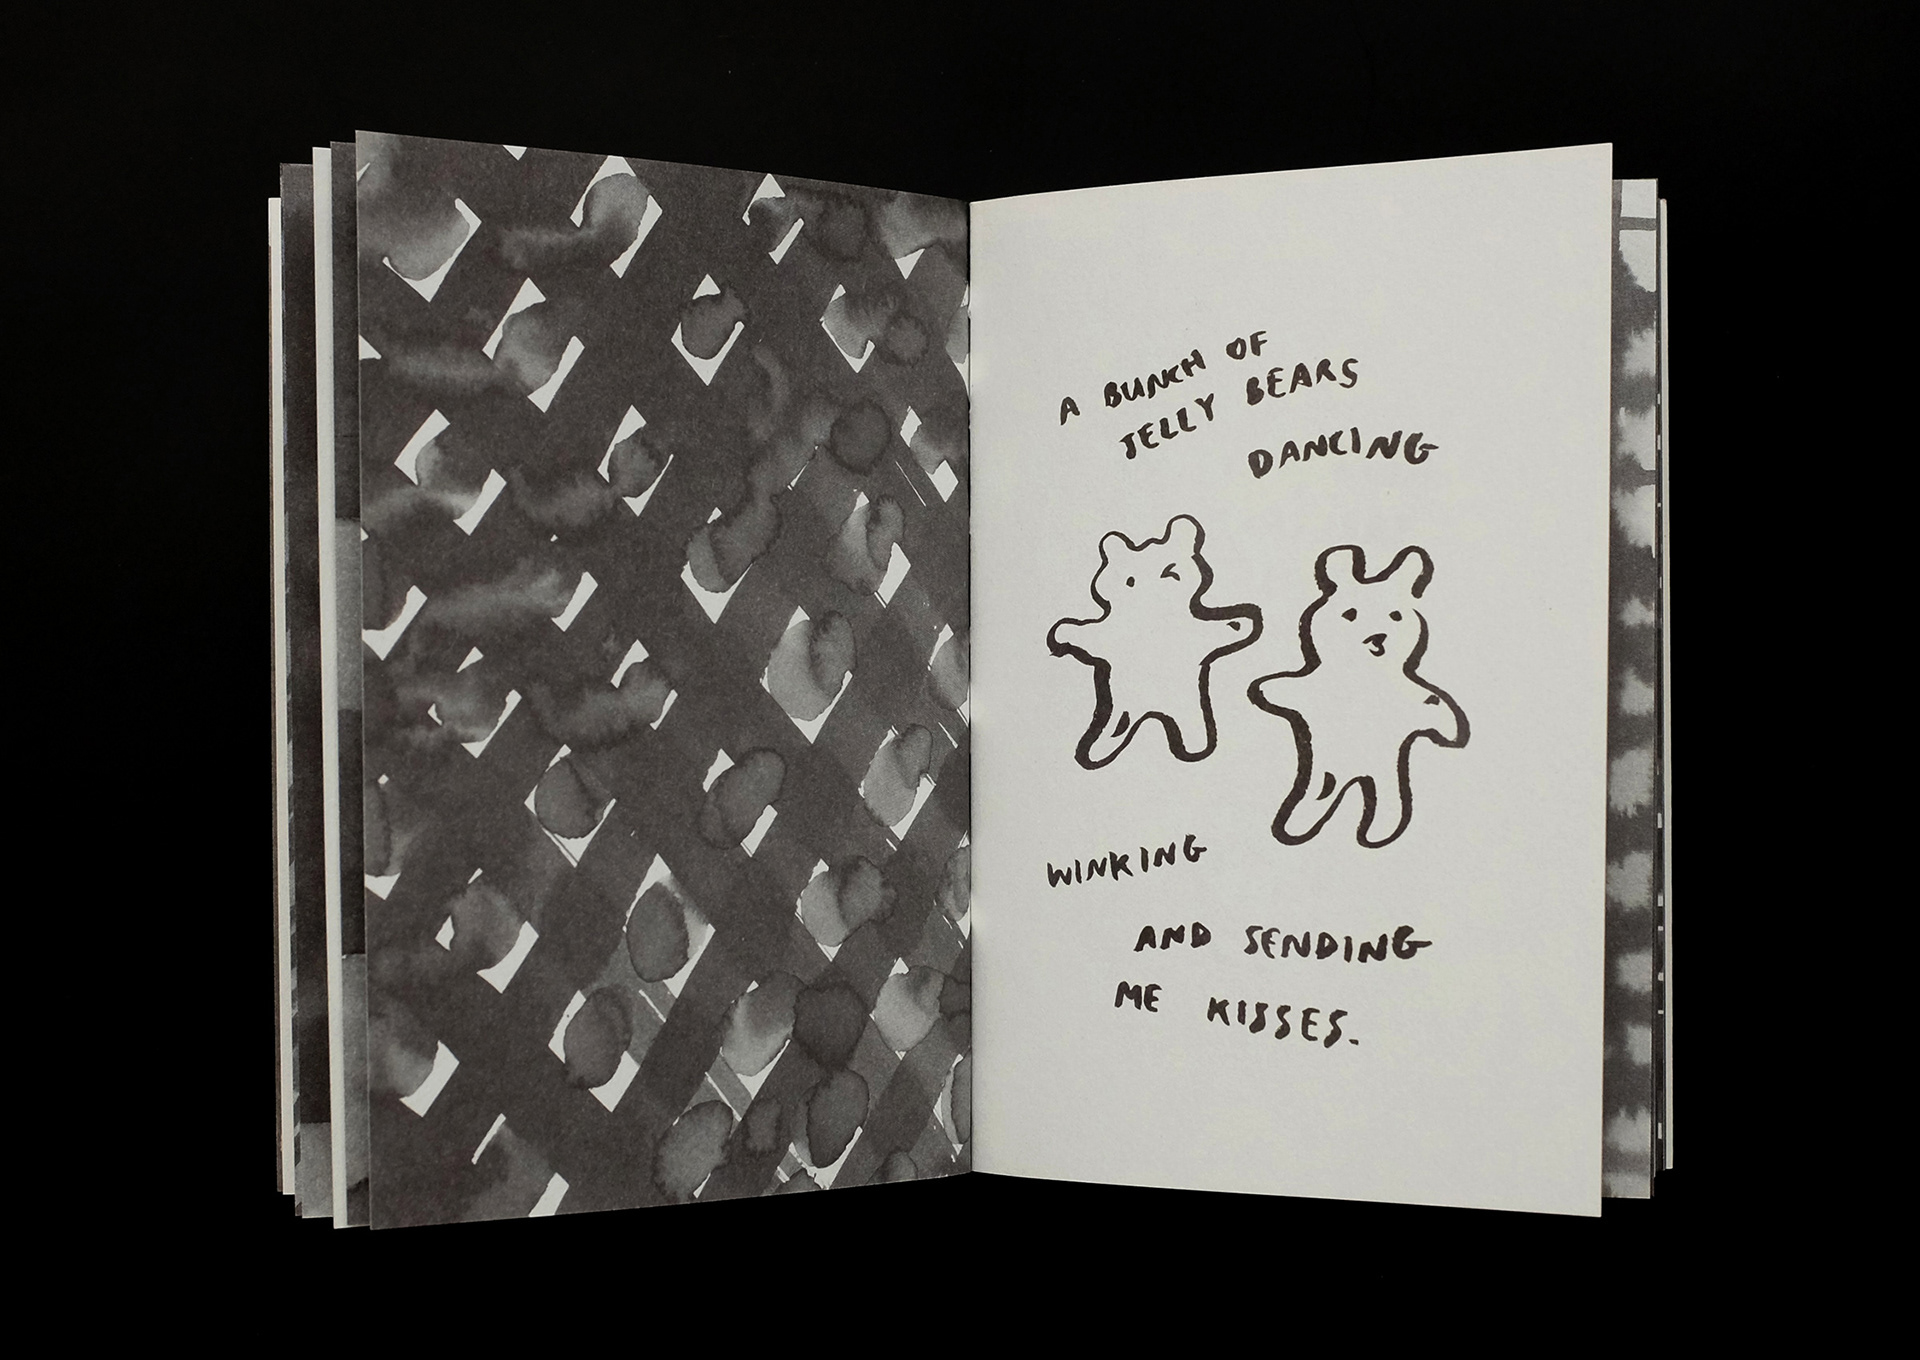 A BUNCH OF
JELLY BEARS
DANCING
WINKING
AND SENDING
ME KISSES.